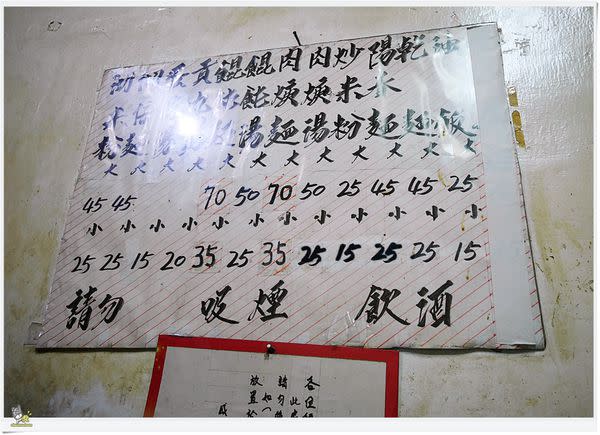 油飯 大 25 小 15
乾麵 大 45 小 25
陽春麵 大 45 小 25
炒米粉 大 25 小 15
肉焿湯 大 50 小 25
肉焿麵 大 70 小 35
餛飩湯 大 50 小 25
餛飩麵 大 70 小 35
貢丸 小 20
小 15
麵 大 45 小 25
米粉 大 45 小 25
請勿 吸煙 飲酒
各位
請勿
放置於